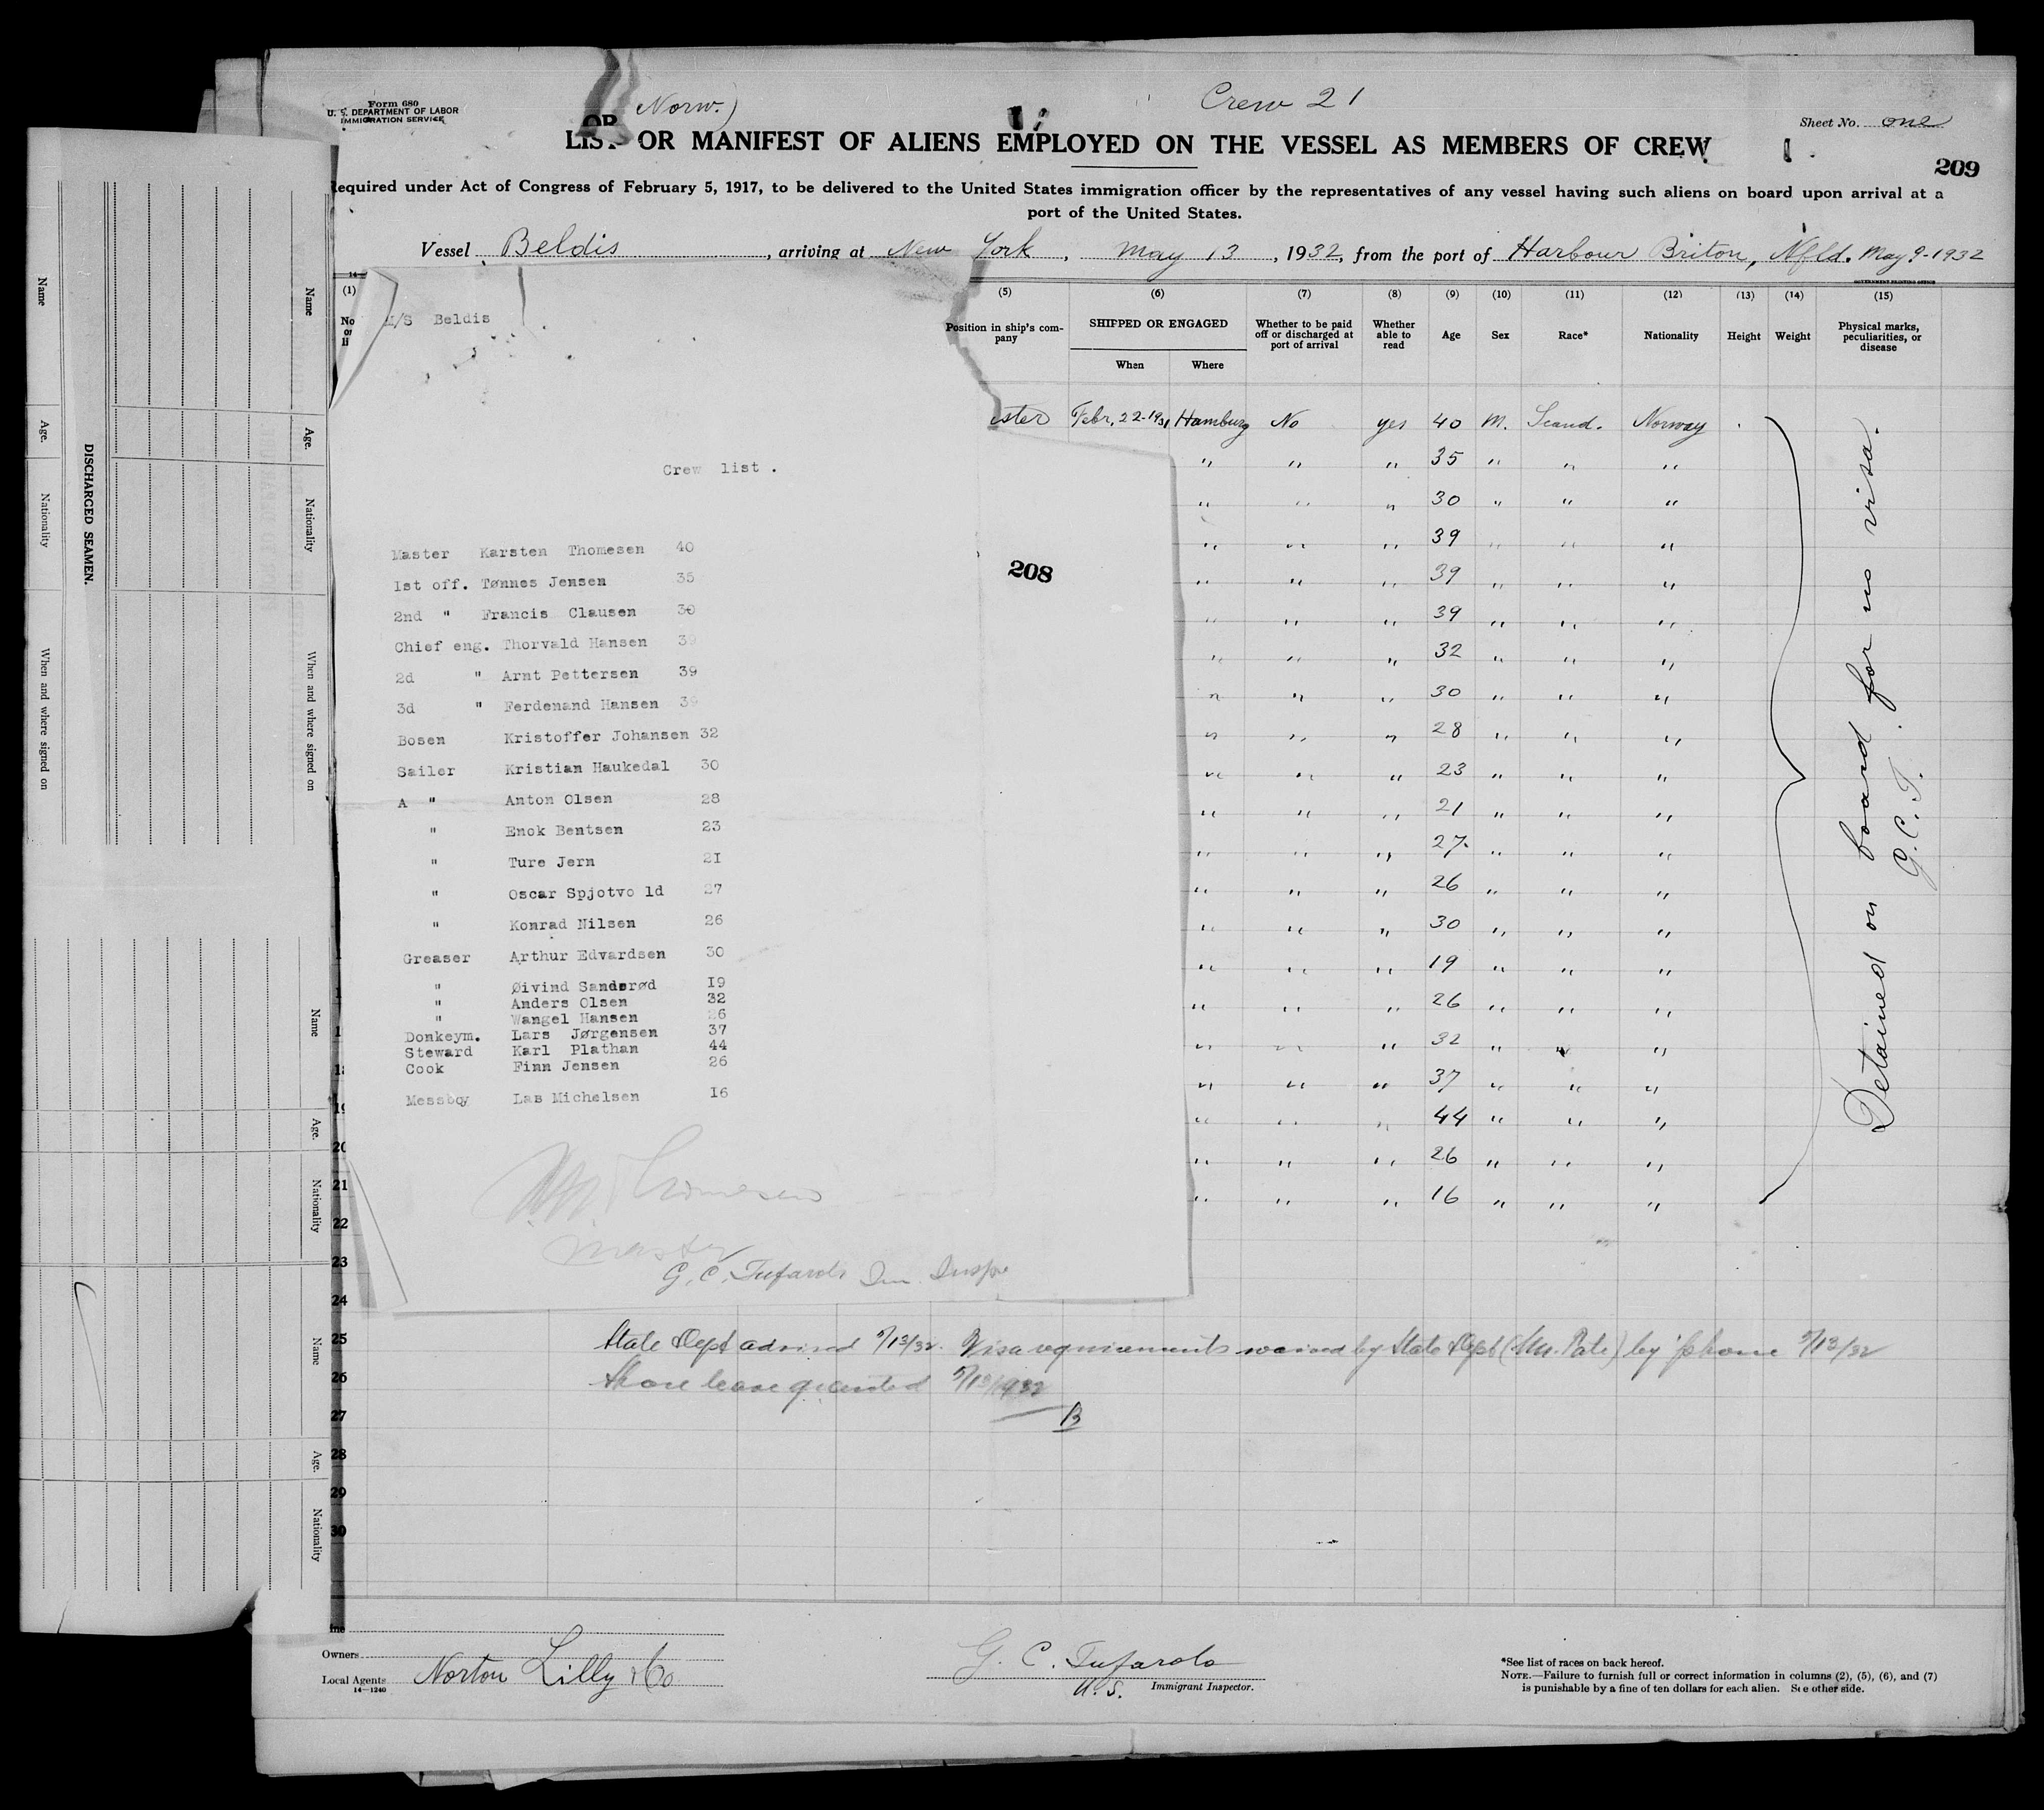 Form 680
U. S. DEPARTMENT OF LABOR
IMMIGRATION SERVICE
Norw.)
Crew 21
Sheet No. one
LIST OR MANIFEST OF ALIENS EMPLOYED ON THE VESSEL AS MEMBERS OF CREW
209
equired under Act of Congress of February 5, 1917, to be delivered to the United States immigration officer by the representatives of any vessel having such aliens on board upon arrival at a
port of the United States.
Vessel Beldis, arriving at New York, May 13, 1932, from the port of Harbour Briton, Nfld. May 9-1932
GOVERNMENT PRINTING OFFICE
(1) (5) (6) (7) (8) (9) (10) (11) (12) (13) (14) (15)
No
Position in ship's company
SHIPPED OR ENGAGED
When Where
Whether to be paid off or discharged at port of arrival
Whether able to read
Age Sex Race* Nationality Height Weight
Physical marks, peculiarities, or disease
ster Febr. 22-1931 Hamburg No yes 40 M. Scand. Norway
" " " 35 " " "
" " " 30 " " "
" " " 39 " " "
" " " 39 " " "
" " " 39 " " "
" " " 32 " " "
" " " 30 " " "
" " " 28 " " "
" " " 23 " " "
" " " 21 " " "
" " " 27 " " "
" " " 26 " " "
" " " 30 " " "
" " " 19 " " "
" " " 26 " " "
" " " 32 " " "
" " " 37 " " "
" " " 44 " " "
" " " 26 " " "
" " " 16 " " "
Detained on board for no visa.
G. C. T.
M/S Beldis
Crew list .
208
Master Karsten Thomesen 40
1st off. Tønnes Jensen 35
2nd " Francis Clausen 30
Chief eng. Thorvald Hansen 39
2d " Arnt Pettersen 39
3d " Ferdenand Hansen 39
Bosen Kristoffer Johansen 32
Sailer Kristian Haukedal 30
A " Anton Olsen 28
" Enok Bentsen 23
" Ture Jern 21
" Oscar Spjotvo ld 27
" Konrad Nilsen 26
Greaser Arthur Edvardsen 30
" Øivind Sanderød 19
" Anders Olsen 32
" Wangel Hansen 26
Donkeym. Lars Jørgensen 37
Steward Karl Plathan 44
Cook Finn Jensen 26
Messboy Las Michelsen 16
Thomesen
master
G. C. Tufarolo Im. Inspr
19
20
21
22
23
24
25
26
27
28
29
30
State Dept advised 5/13/32. Visa requirements waived by State Dept (Mr. Pate) by phone 5/13/32
Shore leave granted 5/13/1932
B
Owners
Local Agents Norton Lilly & Co
14—1240
G. C. Tufarolo
U. S. Immigrant Inspector.
*See list of races on back hereof.
NOTE.—Failure to furnish full or correct information in columns (2), (5), (6), and (7)
is punishable by a fine of ten dollars for each alien. See other side.
DISCHARGED SEAMEN.
Name
Age.
Nationality
When and where signed on
Name
Age.
Nationality
When and where signed on
Name
Age.
Nationality
Name
Age.
Nationality